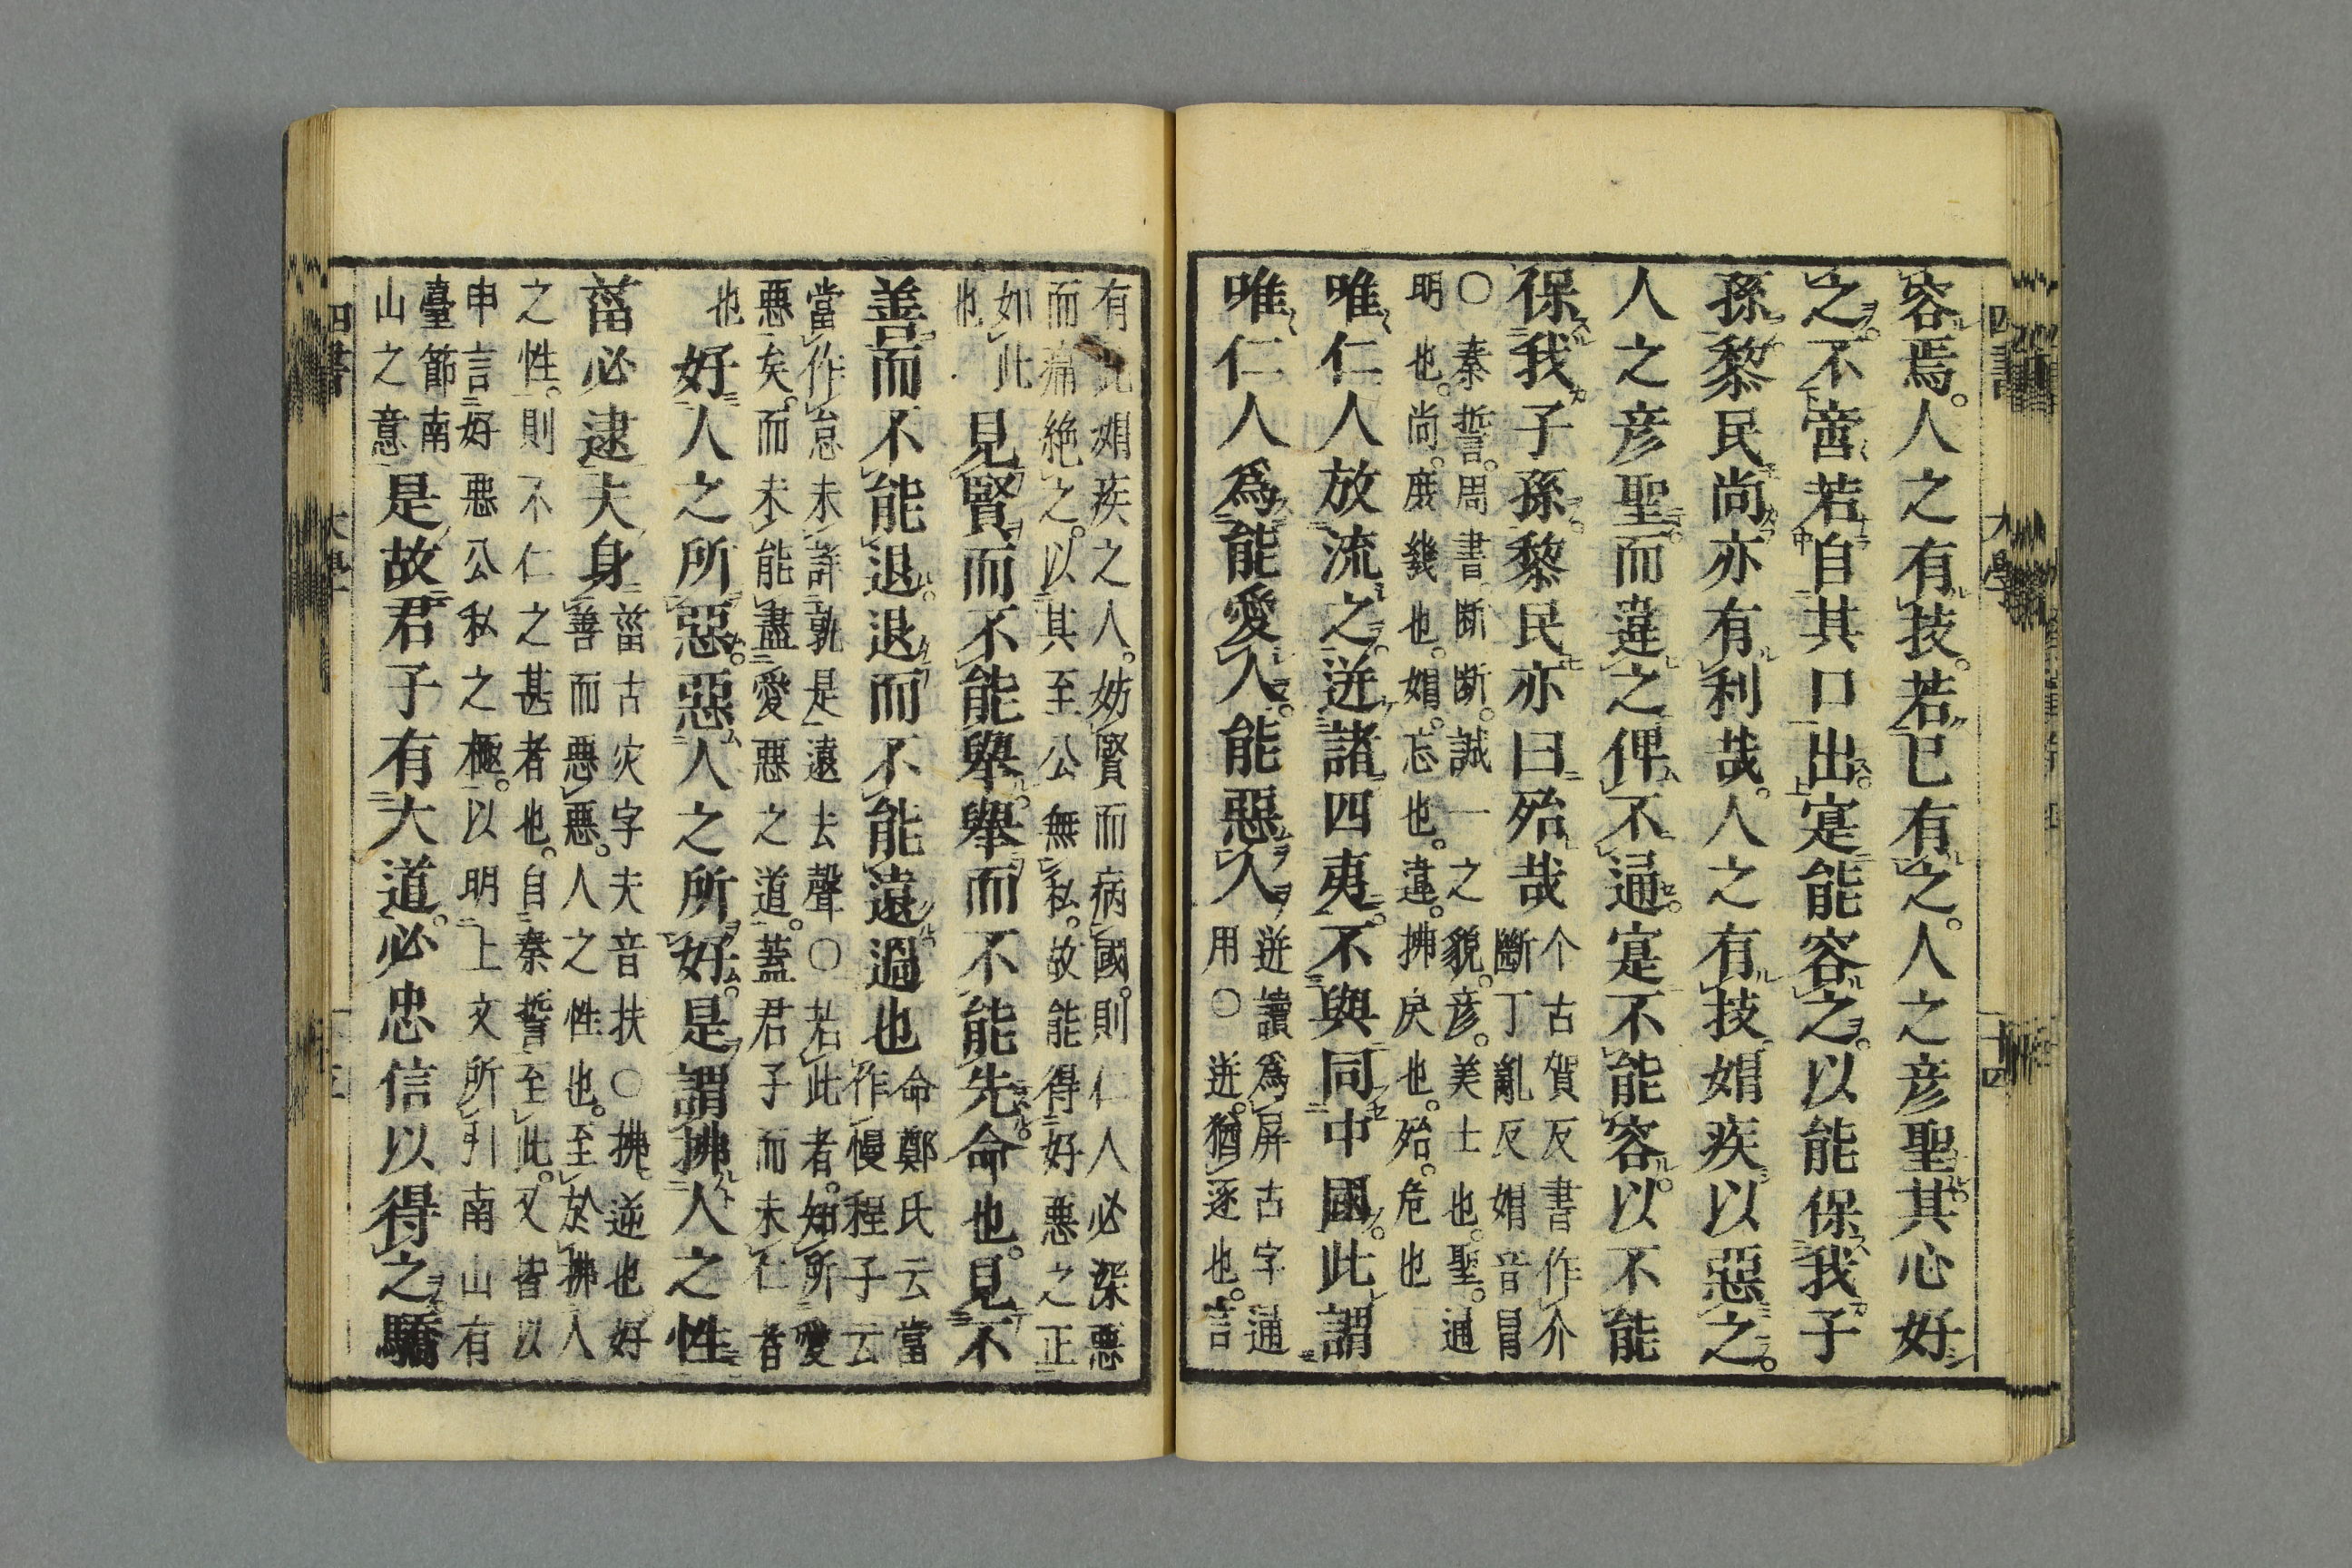 容焉。人之有技。若已有之。人之彦聖其心好
之。不啻若自其口出。寔能容之。以能保我子
孫黎民尚亦有利哉。人之有技。媢疾以惡之。
人之彦聖。而違之俾不通。寔不能容。以不能
保我子孫。黎民亦曰殆哉
个古賀反書作介
斷丁亂反媢音冒
○秦誓。周書断断。誠一之貌。彦。美士也。聖。通
明也。尚。庶幾也。媢。忘也。違。拂戾也。殆。危也
唯仁人放流之。迸諸四夷。不與同中國。此謂
唯仁人爲能愛人。能惡人
迸讀爲屏古字通
用○迸。猶逐也。言
有此媢疾之人。妨賢而病國。則仁人必深惡
而痛絶之。以其至公無私。故能得好惡之正
如此
也
見賢而不能舉。舉而不能先。命也。見不
善而不能退。退而不能遠。過也
命鄭氏云當
作慢程子云
當作怠未詳孰是遠去聲○若此者。知所愛
惡矣。而未能盡愛惡之道。蓋君子而未仁者
也
好人之所惡。惡人之所好。是謂拂人之性
菑必逮夫身
菑古灾字夫音扶○拂。逆也好
善而惡惡。人之性也。至於拂人
之性。則不仁之甚者也。自秦誓至此。又皆以
申言好惡公私之極。以明上文所引南山有
臺節南
山之意
是故君子有大道。必忠信以得之驕
四書
大學
十四